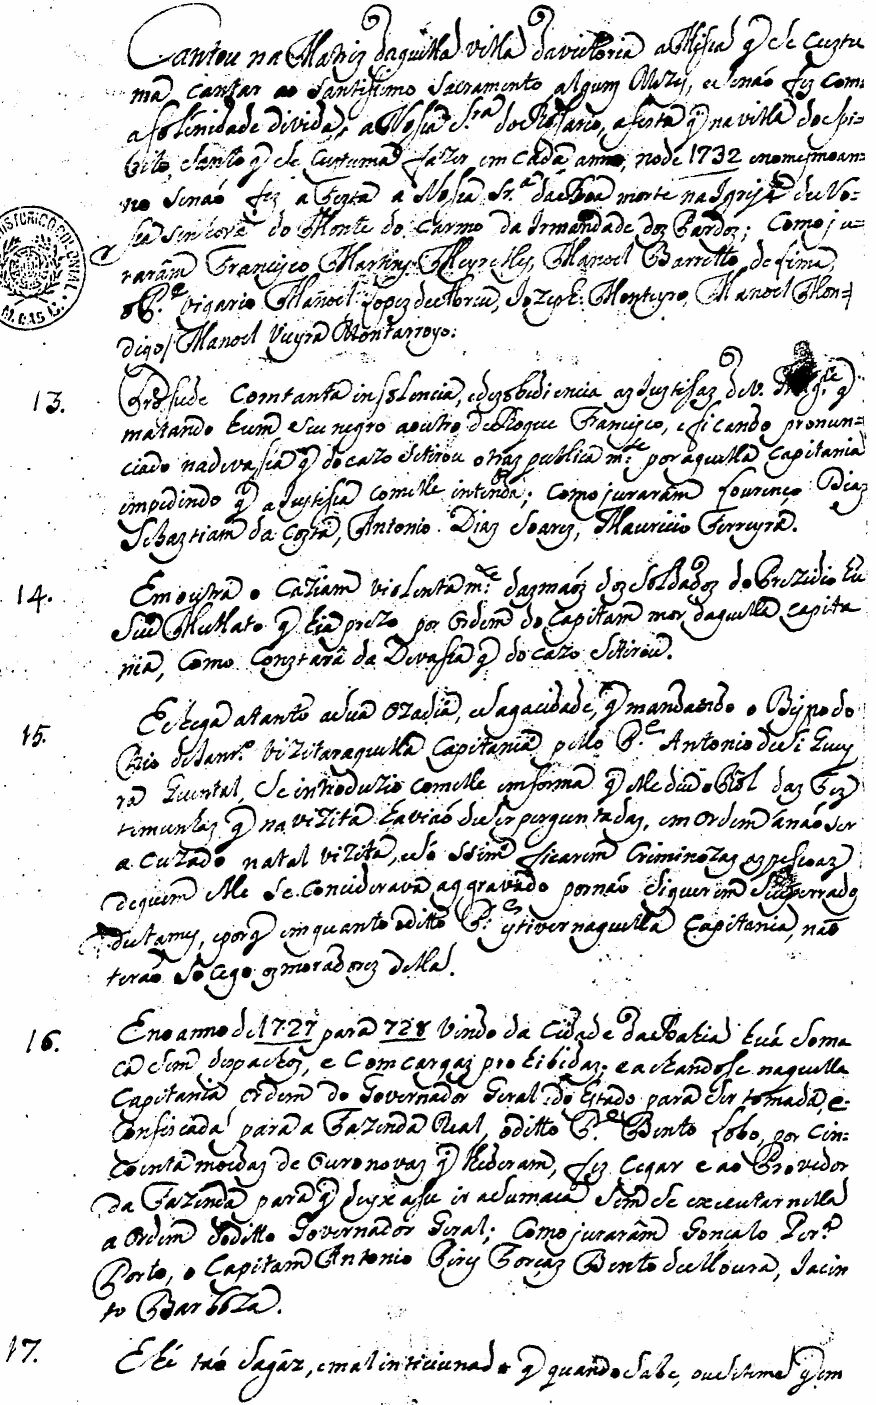 Cantou na Matriz daquella villa da victoria a Missa q̃ se custu
ma cantar ao Santissimo Sacramento algum Mezes, e senaó fez com
a solenidade divida, a Nossa Sr.ª do Rosario, a festa q̃ na villa do espi=
rito Santo q̃ se custuma fazer em cada anno, no de 1732 e no mesmo an=
no senaó fez a Festa a Nossa Sr.ª da Boa morte na Igrija de No=
ssa senhora do Monte do Carmo da Irmandade dos Pardos; Como ju=
raram Francisco Martins Meyrelles, Manoel Barretto de Lima,
o P.e vigario Manoel Lopez de Abreu, Jozeph Monteyro, Manoel Mon=
digo, Manoel Vieyra Montarroyo.
13. Procede Com tanta insolencia, e dezobediencia as Justisas de V. Mag.e q̃
matando hum seu negro a outro de Roque Francisco, e ficando pronun=
ciado na devassa q̃ do cazo se tirou o tras publicam.te por aquella Capitania
impedindo q̃ a Justisa com elle intenda; como juraram Lourenço Dias
Sebastiam da Costa, Antonio Dias Soares, Mauricio Ferreyra.
14. Em outra o Caziam violentam.te das maós dos Soldados do Prezidio hu
seu Mullato q̃ hia prezo por Ordem do Capitam mor daquella capita
nia, como Constará da Devassa q̃ do cazo se tirou.
15. E chega a tanto a sua Ozadia, e sagacidade, q̃ mandando o Bispo do
Rio de Janr.º vizitar aquella Capitania pello P.e Antonio de Siqueiy
ra Quental, se introduzio com elle em forma q̃ elle deu o Rol das Tes
temunhas q̃ na vizita haviaó de ser perguntadas, em ordem a naó ser
a cuzado na tal vizita, e só ssim ficarem Criminozas as pessoas
de quem elle se Conciderava aggravado por naó siguerem seus errados
dictames, e porq̃ em quanto o ditto P.e estiver naquella Capitania, naó
teraó socego os moradores della.
16. E no anno de 1727 para 728 vindo da Cidade da Bahia huá Suma
ca sem despachos, e Com cargas prohibidas; e achandose naquella
Capitania ordem do Governador Geral do Estado para ser tomada, e
Confiscada para a Fazenda Real, o ditto P.e Bento Lobo, por Cin=
coenta moedas de Ouro novas q̃ lhe deram, fez Cegar e ao Provedor
da Fazenda para q̃ deyxasse ir a Sumaca sem se executar nella
a Ordem do ditto Governador Geral; Como juraram Gonçalo Per.ª
Porto, o Capitam Antonio Pires Forças Bento de Moura, Jacin
to Barboza.
17. E hé taó sagaz, e mal intencionado q̃ quando sabe, ou se teme q̃ em